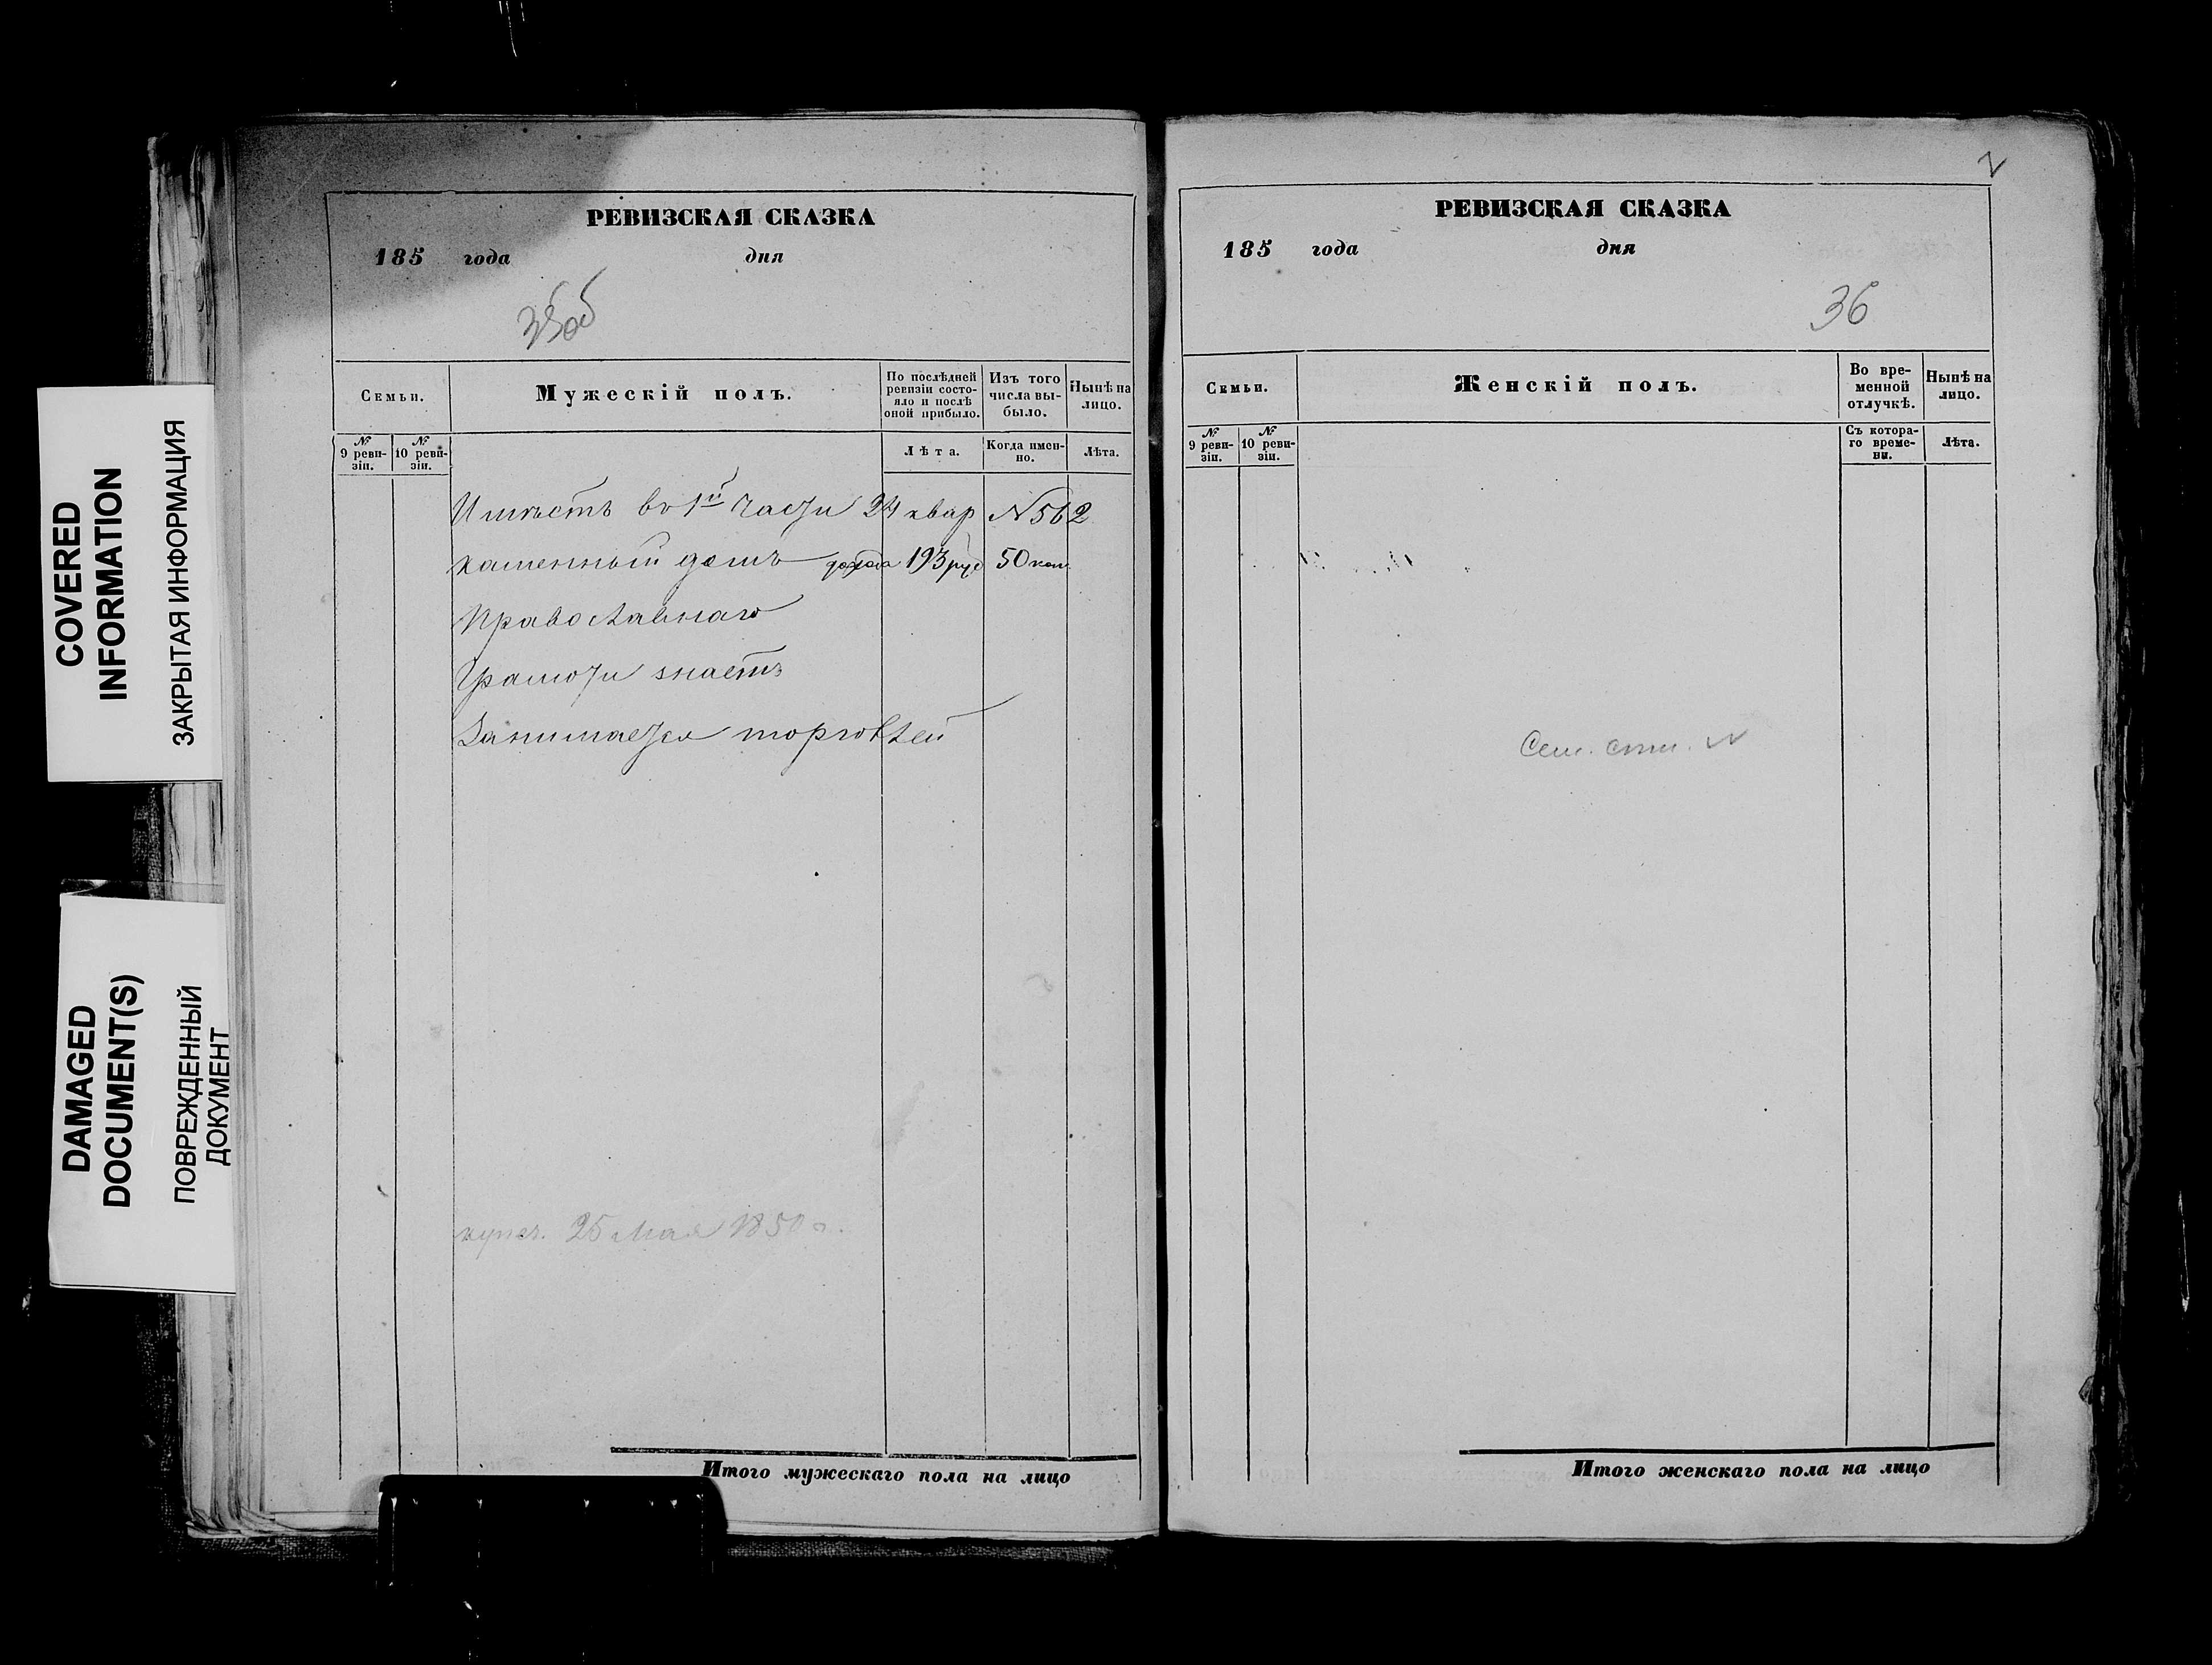 COVERED
INFORMATION
ЗАКРЫТАЯ ИНФОРМАЦИЯ
DAMAGED
DOCUMENT(S)
ПОВРЕЖДЕННЫЙ
ДОКУМЕНТ
РЕВИЗСКАЯ СКАЗКА
185 года дня
35об
Семьи.
Мужескій полъ.
По послѣдней ревизіи состо-
яло и послѣ
оной прибыло.
Изъ того
числа вы-
было.
Нынѣ на
лицо.
№ 9 реви-
зіи.
№ 10 реви-
зіи.
Лѣта.
Когда имен-
но.
Лѣта.
Имѣетъ въ 1й части 24 квар № 562
каменный домъ дохода 193 руб 50 коп.
Православнаго
Грамоти знаетъ
Занимается торговлей
купеч. 25 Мая 1850 г.
Итого мужескаго пола на лицо
РЕВИЗСКАЯ СКАЗКА
185 года дня
36
Семьи.
Женскій полъ.
Во вре-
менной
отлучкѣ.
Нынѣ на
лицо.
№ 9 реви-
зіи.
№ 10 реви-
зіи.
Съ котора-
го време-
ни.
Лѣта.
Итого женскаго пола на лицо